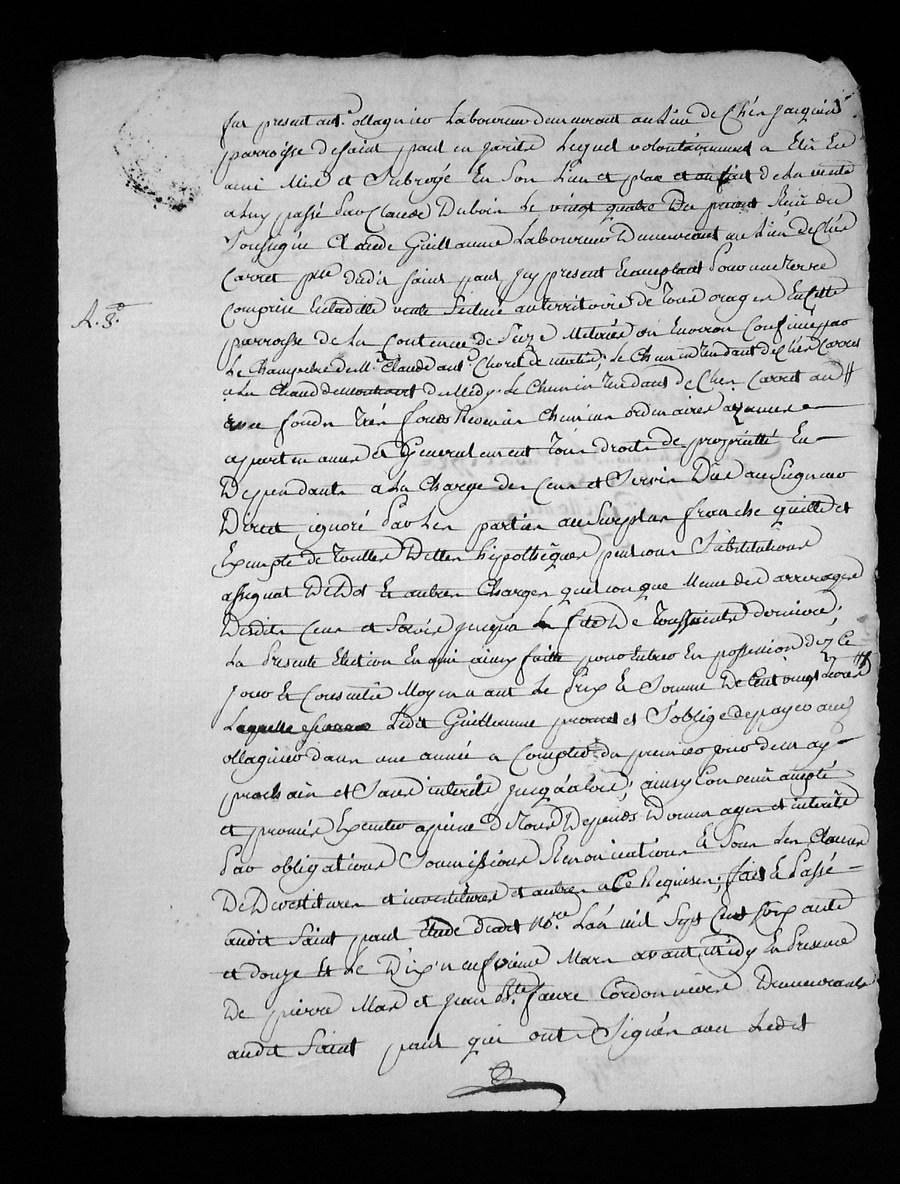 fut present ant.e ollagnier Laboureur demeurant au Lieu de Chés Jacquier
parroisse de saint paul en jarét Lequel volontairement a Elû En
ami Mis et Subrogé En Son Lieu et place et au fait de La vente
a Luy passé Par Claude Duboin Le vingt quatre Du present Reçû du
Soussigné Claude Guillaume Laboureur Demeurant au Lieu de Chés
Carret p.sse dudit saint paul, Icy present Et acceptant Pour une terre
Comprise En Laditte vente Scituée au territoire de Tour En Cette
parroisse de La Contenue de Seize Meterées ou Environ Confinée par
Le de M.r Claude ant.e de matin; Le Chemin Tendant de Chés Carret
a La Chaud de midy; Le Chemin Tendant de Chés Carret au
A. 8.e
avec fonds Très fonds Revenus Chemins ordinaires aizances
apartenances et Generalement Tous droits de proprietté En
Dependants a La Charge des Cens et Servis Dûs au Seigneur
Direct ignoré Par Les parties au Surplus franche quitte et
Exempte de Touttes Dettes hipotheques pensions Substitutions
assignat De Dot Et autres Charges quelconque Meme des arrerages
Desdits Cens et Servis jusqua La fête De Toussaints derniere;
La Presente Election En ami ainsy faitte pour Entrer En possession dez Ce
jour Et Consentie Moyennant Le Prix Et Somme De Cent vingt Livres
Laquelle Somme Ledit Guillaume promet et S'oblige de payer aud.
ollagnier dans une année a Compter du premier jour deux
prochain et Sans interêts jusqu'alors; ainsy Convenû accepté
et promis Executer a peine De Tous Depends Dommages et interêts
Par obligations Soumissions Renonciations Et Sous Les Clauses
De Devestitures et investitures et autres a Ce Requises; fait Et Passé
audit Saint paul Etude dudit No.re L'an mil Sept Cent Soixante
et douze Et Le Dix neufvieme Mars avant midy En Presence
De pierre Mas et Jean Bte faure Cordonniers Demeurants
audit Saint paul qui ont Signés avec Ledit